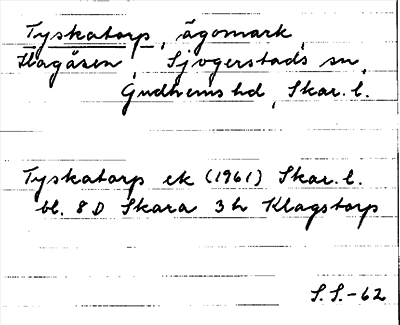 Tyskatorp, ägomark,
Klagåsen, Sjogerstads sn,
Gudhems hd, Skar. l.
Tyskatorp ek (1961) Skar. l.
bl. 8 D Skara 3 h Klagstorp
S.S.-62